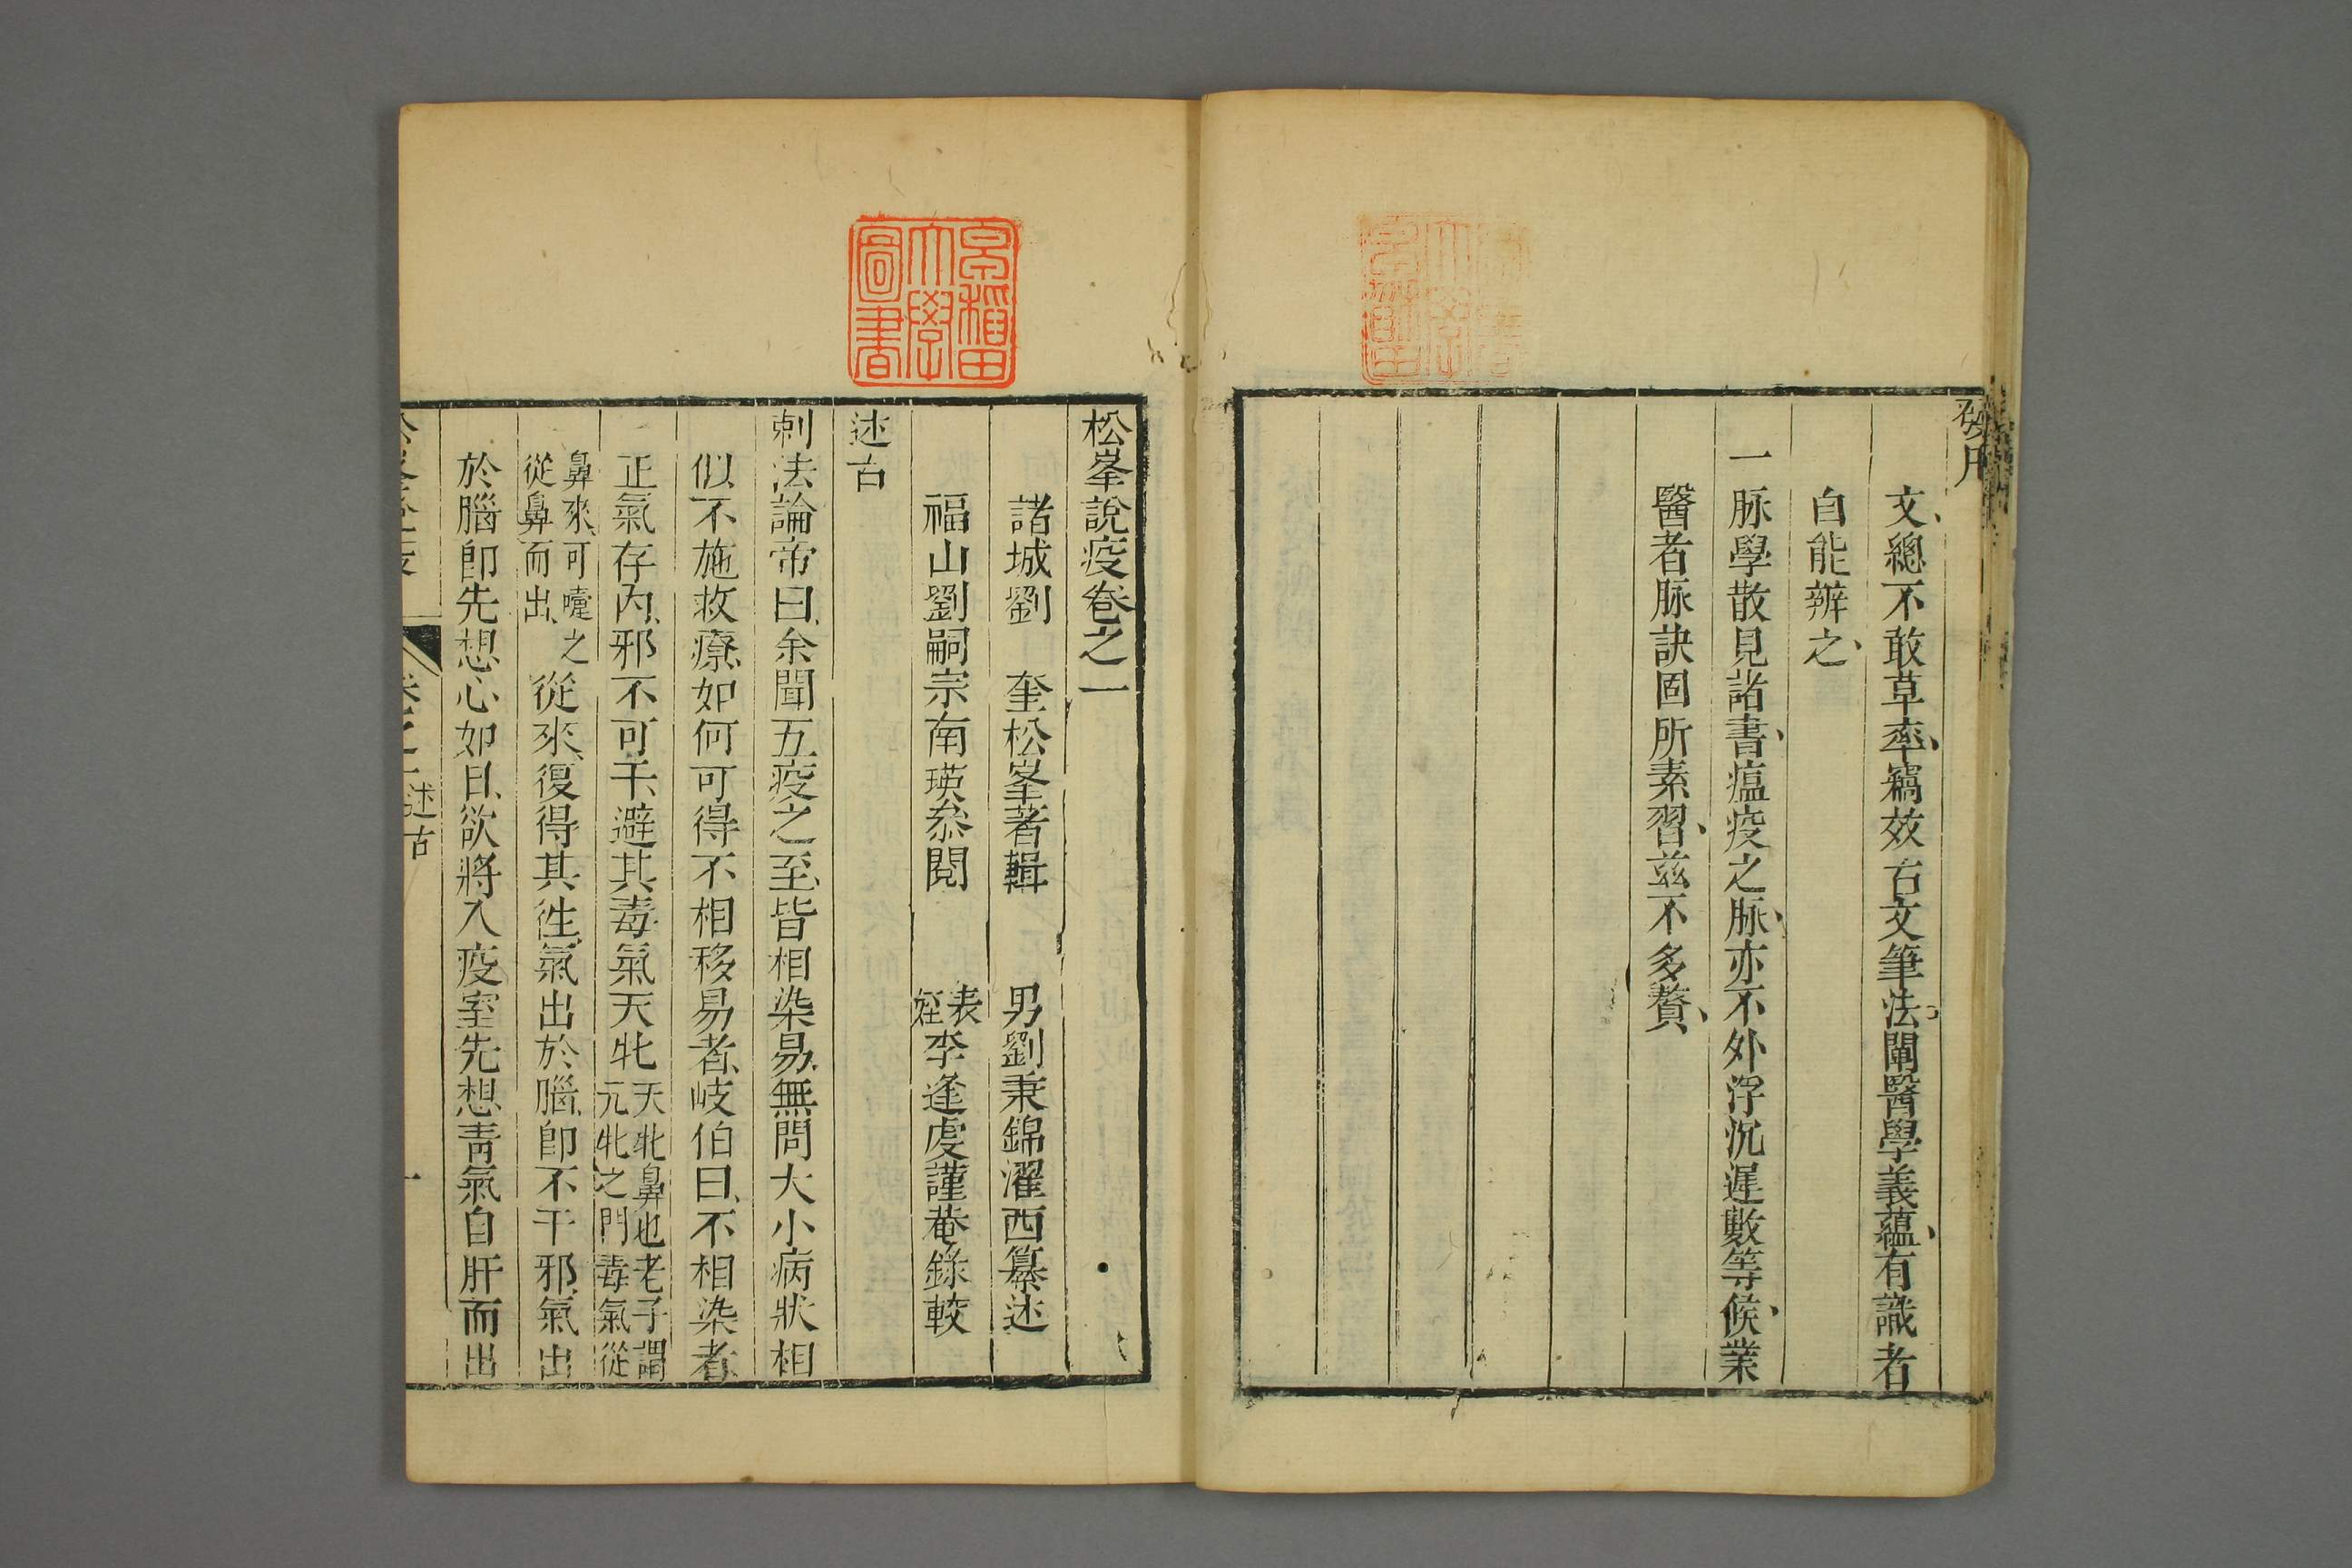 發凡
文總不敢草率竊效古文筆法闡醫學義蘊有識者
自能辨之
一脉學散見諸書瘟疫之脉亦不外浮沉遲數等候業
醫者脉訣固所素習兹不多贅
早稻田大學圖書
松峯說疫卷之一
諸城劉 奎松峯著輯 男劉秉錦濯西纂述
福山劉嗣宗南瑛叅閱 表姪李逢虔謹菴錄較
述古
刺法論帝曰余聞五疫之至皆相染易無問大小病狀相
似不施救療如何可得不相移易者岐伯曰不相染者
正氣存內邪不可干避其毒氣天牝天牝鼻也老子謂元牝之門毒氣從
鼻來可嚏之從鼻而出從來復得其徃氣出於腦卽不干邪氣出
於腦卽先想心如日欲將入疫室先想靑氣自肝而出
卷之一 述古 一